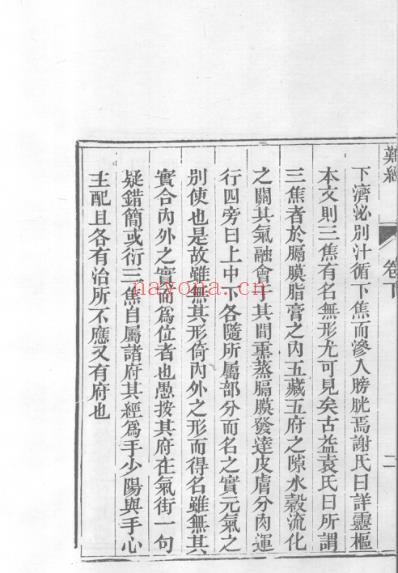 難經
卷下
二
下濟泌別汁循下焦而滲入膀胱焉謝氏曰詳靈樞
本文則三焦有名無形尤可見矣古益袁氏曰所謂
三焦者於膈膜脂膏之內五藏五府之隙水穀流化
之關其氣融會于其間熏蒸膈膜發達皮膚分肉運
行四旁曰上中下各隨所屬部分而名之實元氣之
別使也是故雖無其形倚內外之形而得名雖無其
實合內外之實而為位者也愚按其府在氣街一句
疑錯簡或衍三焦自屬諸府其經為手少陽與手心
主配且各有治所不應又有府也
nayona.cn